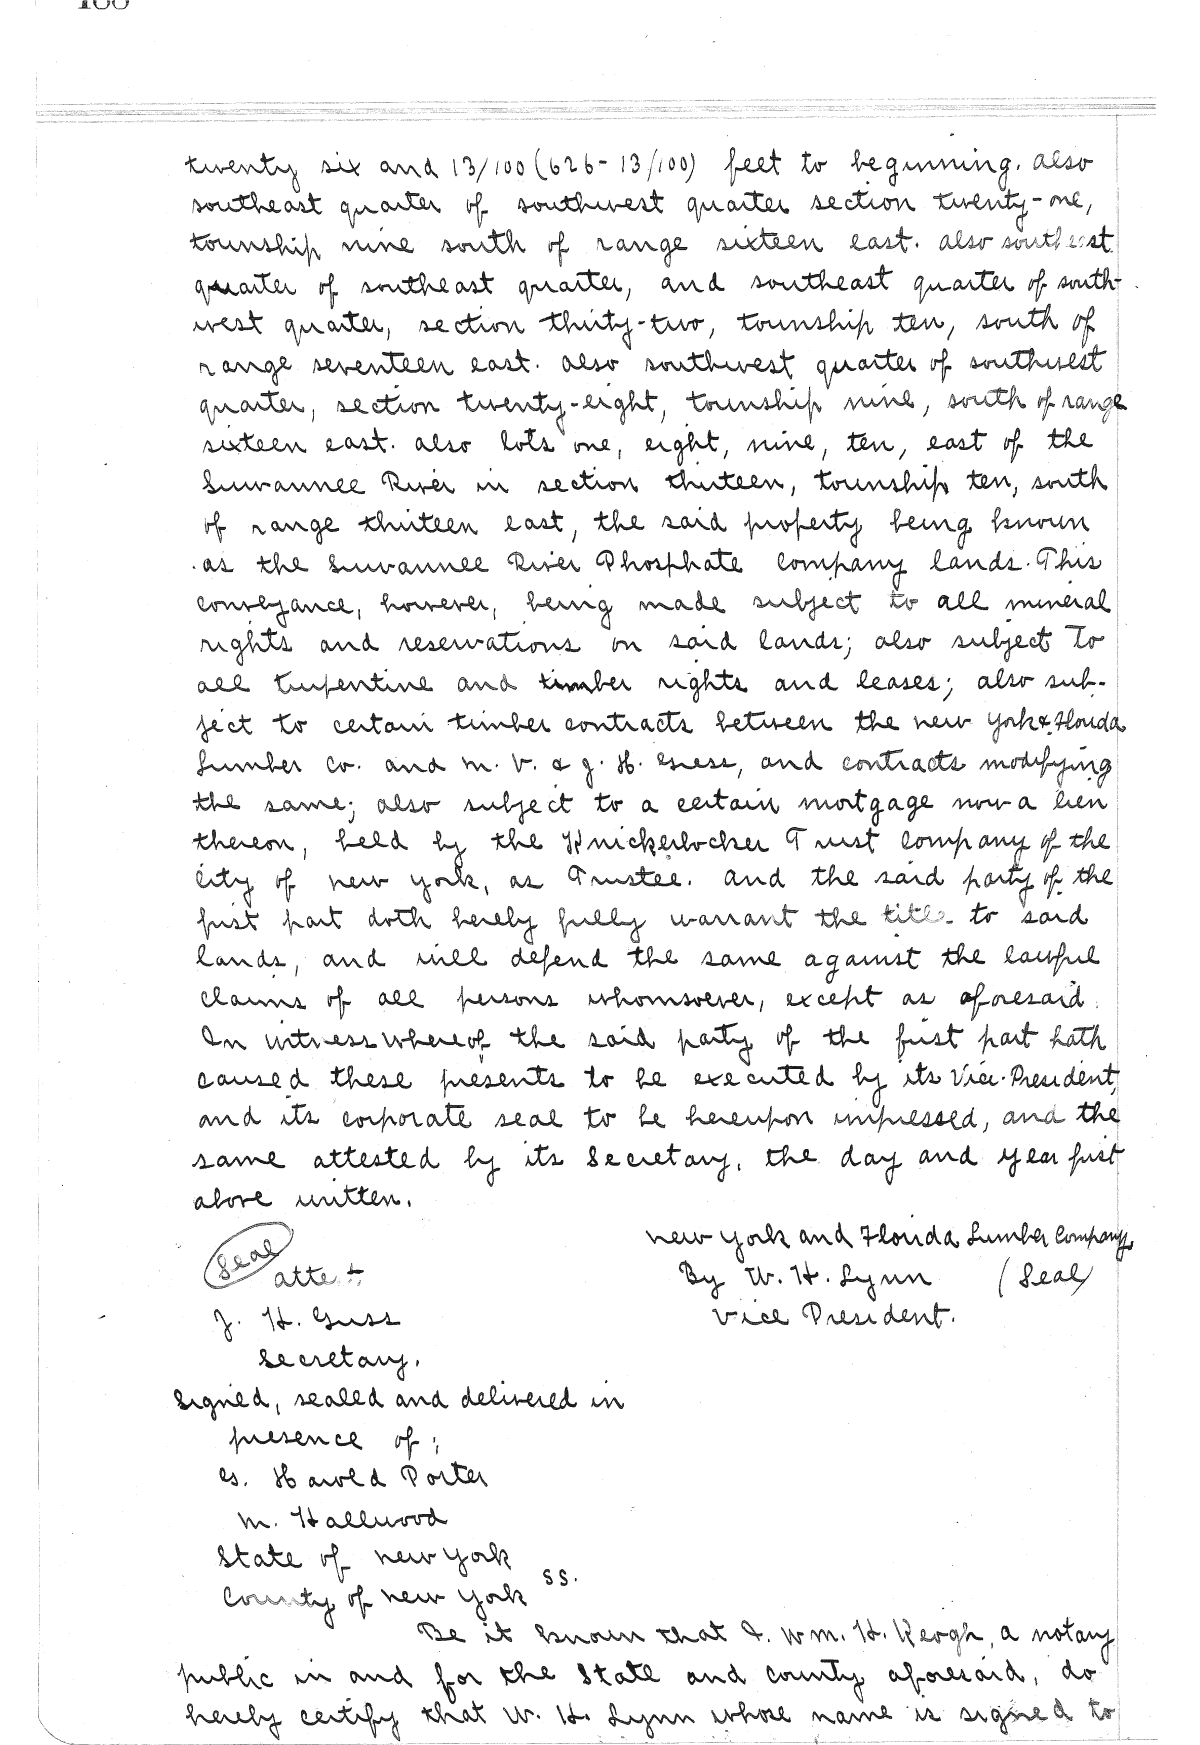 twenty six and 13/100 (626-13/100) feet to beginning. also
southeast quarter of southwest quarter section twenty-one,
township nine south of range sixteen east. also southeast
quarter of southeast quarter, and southeast quarter of south-
west quarter, section thirty-two, township ten, south of
range seventeen east. also southwest quarter of southwest
quarter, section twenty-eight, township nine, south of range
sixteen east. also lots one, eight, nine, ten, east of the
Suwannee River in section thirteen, township ten, south
of range thirteen east, the said property being known
as the Suwannee River Phosphate Company lands. This
conveyance, however, being made subject to all mineral
rights and reservations on said lands; also subject to
all turpentine and timber rights and leases; also sub-
ject to certain timber contracts between the New York & Florida
Lumber Co. and M. V. & J. H. and contracts modifying
the same; also subject to a certain mortgage now a lien
thereon, held by the Knickerbocker Trust Company of the
City of New York, as Trustee. And the said party of the
first part doth hereby fully warrant the title to said
lands, and will defend the same against the lawful
claims of all persons whomsoever, except as aforesaid.
In witness whereof the said party of the first part hath
caused these presents to be executed by its Vice-President,
and its corporate seal to be hereupon impressed, and the
same attested by its Secretary, the day and year first
above written.
New York and Florida Lumber Company,
(Seal) By W. H. Lynn (Seal)
attest Vice President.
J. H. Guss
Secretary.
Signed, sealed and delivered in
presence of;
G. Harold Porter
M. Hallwood
State of New York
County of New York ss.
Be it known that I. Wm. H. Keogh, a notary
public in and for the State and county aforesaid, do
hereby certify that W. H. Lynn whose name is signed to